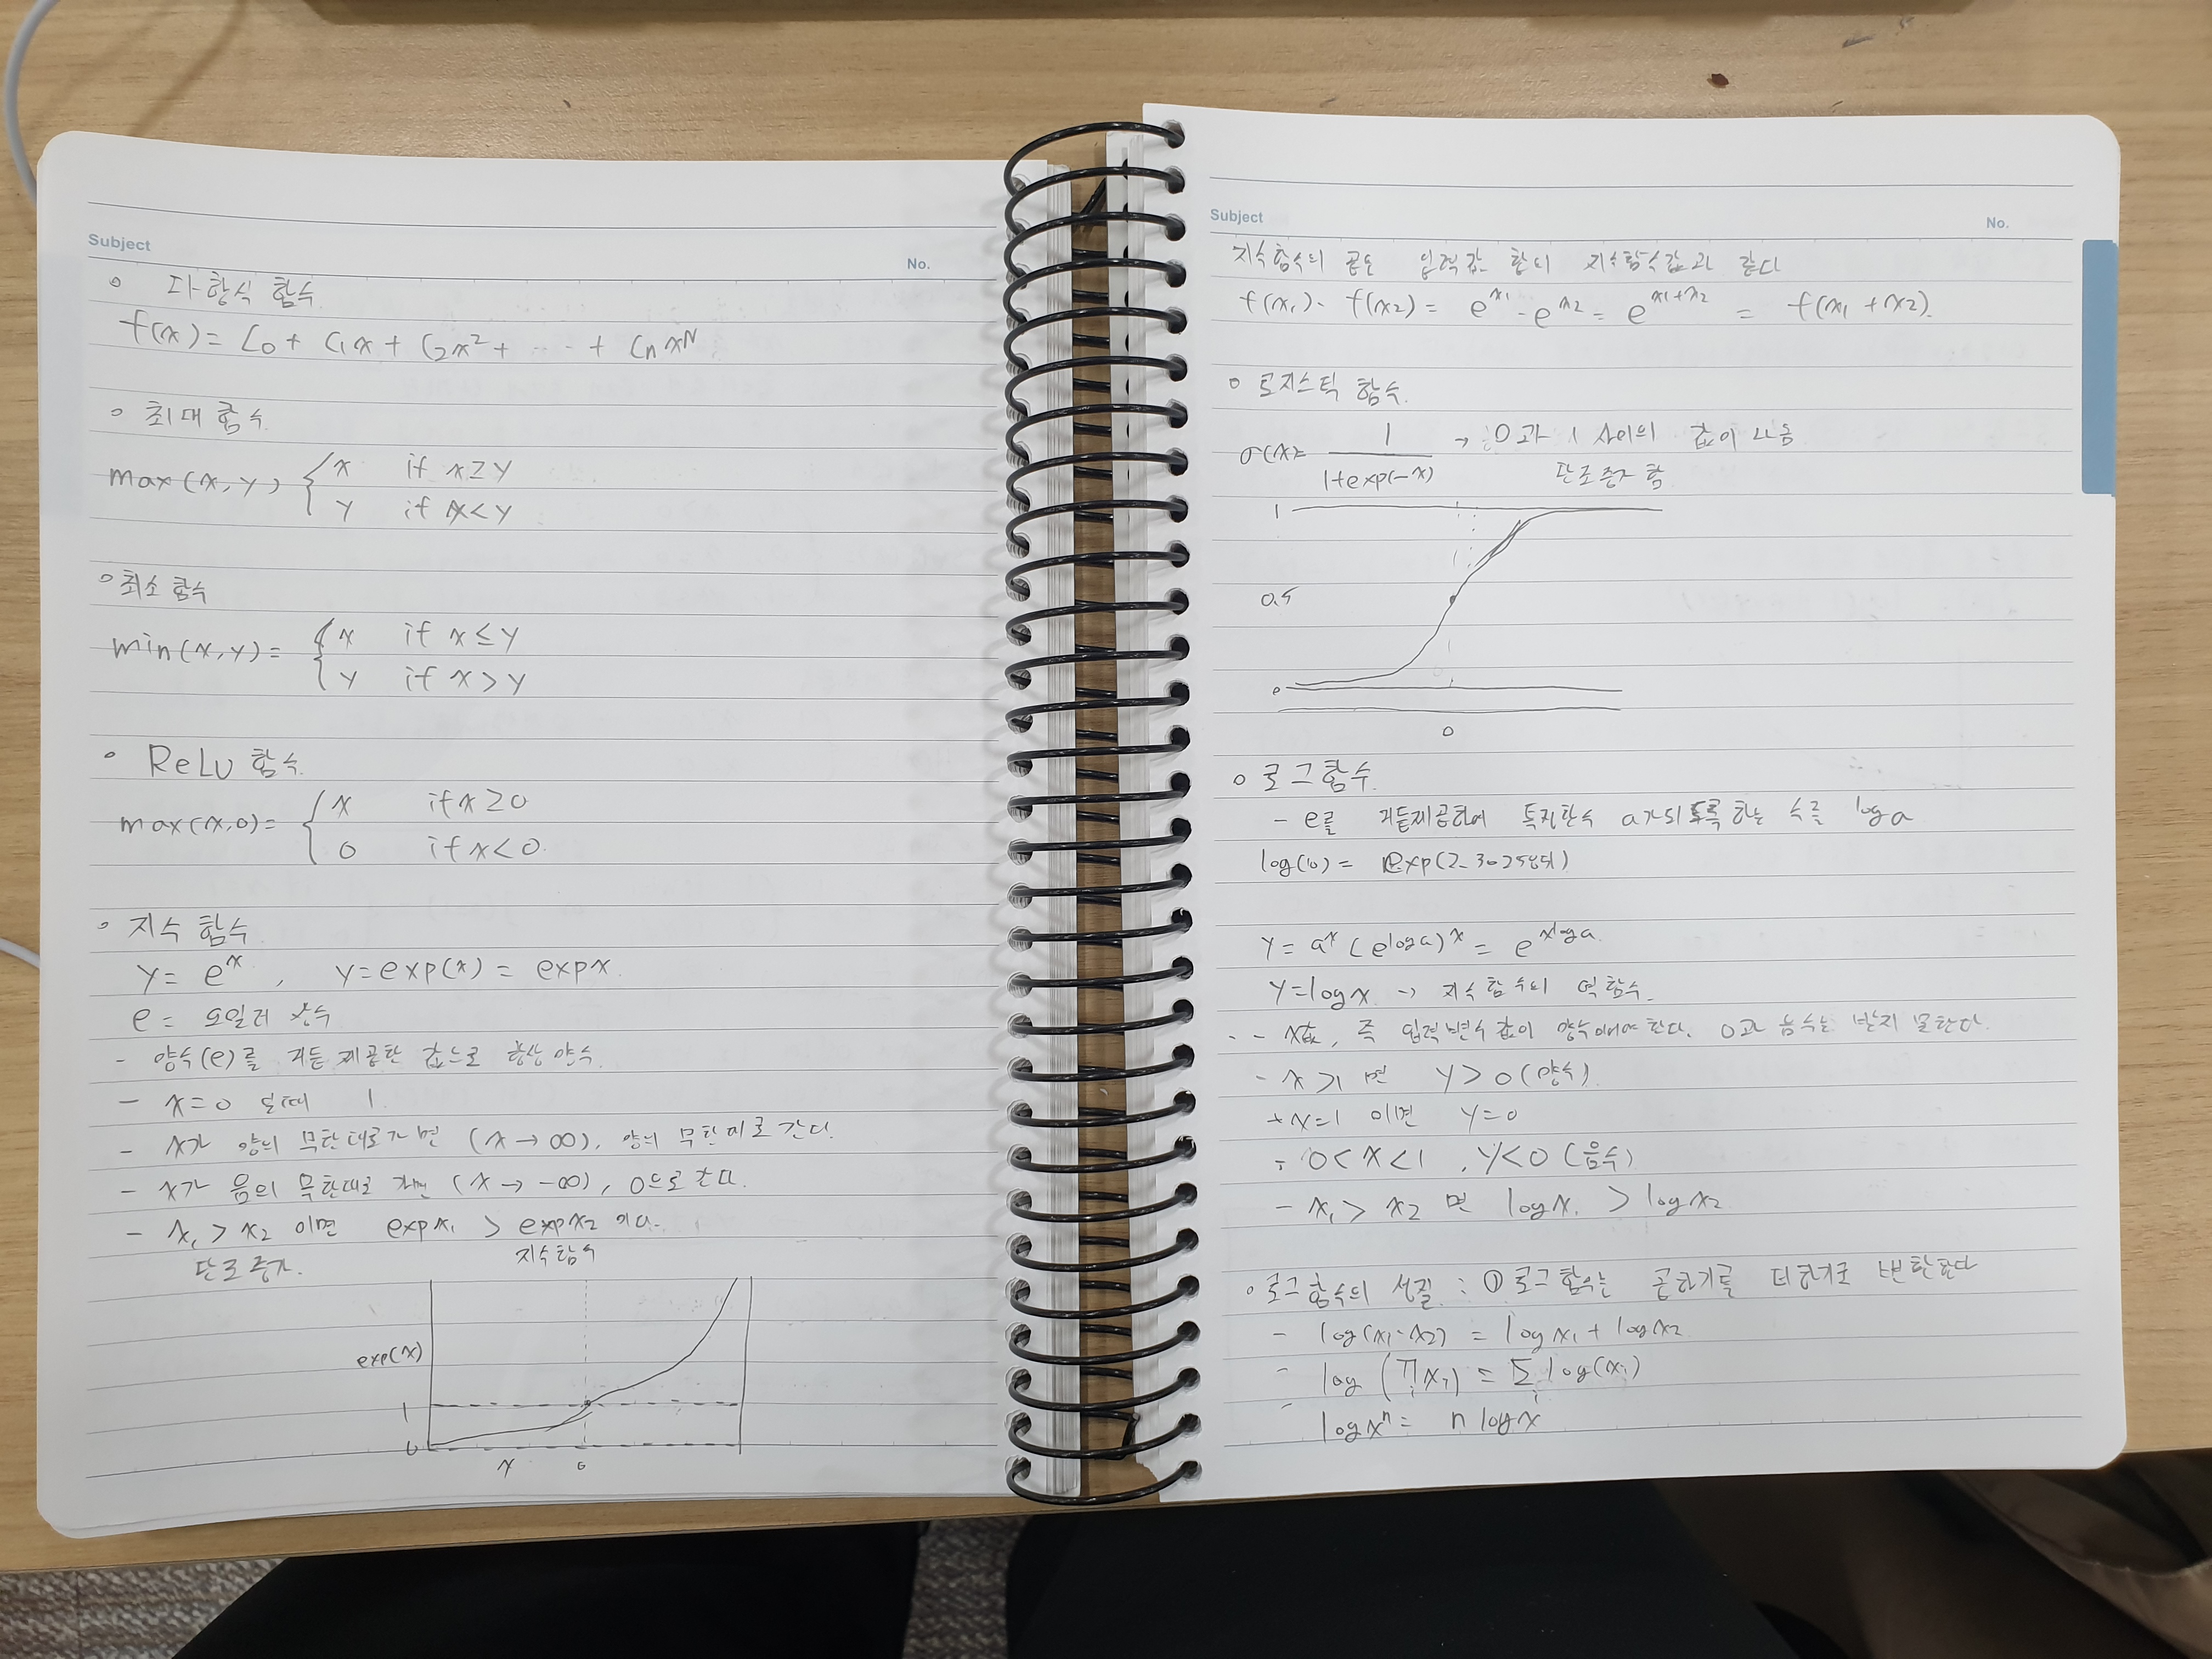 Subject
No.
◦ 다항식 함수
f(x) = C0 + C1x + C2x² + ... + Cn xᴺ
◦ 최대 함수
max(x, y) { x if x≥y
y if x<y
◦ 최소 함수
min(x, y) = { x if x≤y
y if x>y
◦ ReLU 함수
max(x, 0) = { x if x≥0
0 if x<0
◦ 지수 함수
y = eˣ , y=exp(x) = expx
e = 오일러 상수
- 양수(e)를 거듭제곱한 값으로 항상 양수
- x=0 일때 1
- x가 양의 무한대로가면 (x→∞), 양의 무한대로 간다.
- x가 음의 무한대로 가면 (x→-∞), 0으로 간다.
- x₁ > x₂ 이면 expx₁ > expx₂ 이다.
단조 증가.
지수함수
exp(x)
1
0
x 0
Subject
No.
지수함수의 곱은 입력값 합의 지수함수값과 같다
f(x₁)·f(x₂) = eˣ¹·eˣ² = eˣ¹⁺ˣ² = f(x₁+x₂)
◦ 로지스틱 함수
σ(x)= 1 / 1+exp(-x) → 0과 1 사이의 값이 나옴
단조증가 함
1
0.5
0
0
◦ 로그함수
- e를 거듭제곱하여 특정한수 a가되도록 하는 수를 log a
log(10) = exp(2.3025851)
y = aˣ (e^loga)ˣ = e^xloga
y=logx → 지수함수의 역함수.
- x값, 즉 입력변수값이 양수여야한다. 0과 음수는 받지 못한다.
- x>1 면 y>0 (양수)
+ x=1 이면 y=0
- 0<x<1 , y<0 (음수)
- x₁ > x₂ 면 logx₁ > logx₂
◦ 로그 함수의 성질 : ① 로그함수는 곱하기를 더하기로 변환한다
- log(x₁·x₂) = logx₁ + logx₂
- log (∏ᵢ xᵢ) = Σᵢ log(xᵢ)
- logxⁿ = n logx